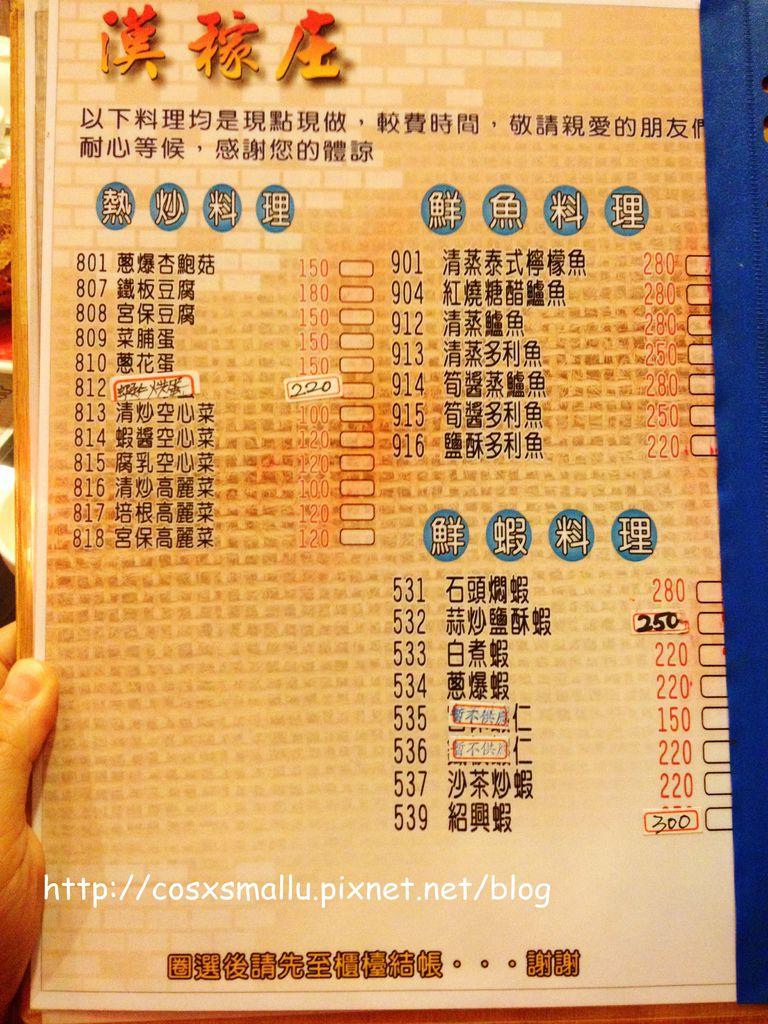 漢稼庄
以下料理均是現點現做，較費時間，敬請親愛的朋友們
耐心等候，感謝您的體諒
熱炒料理
801 蔥爆杏鮑菇 150
807 鐵板豆腐 180
808 宮保豆腐 150
809 菜脯蛋 150
810 蔥花蛋 150
812 蝦仁烘蛋 220
813 清炒空心菜 100
814 蝦醬空心菜 120
815 腐乳空心菜 120
816 清炒高麗菜 100
817 培根高麗菜 120
818 宮保高麗菜 120
鮮魚料理
901 清蒸泰式檸檬魚 280
904 紅燒糖醋鱸魚 280
912 清蒸鱸魚 280
913 清蒸多利魚 250
914 筍醬蒸鱸魚 280
915 筍醬多利魚 250
916 鹽酥多利魚 220
鮮蝦料理
531 石頭燜蝦 280
532 蒜炒鹽酥蝦 250
533 白煮蝦 220
534 蔥爆蝦 220
535 暫不供應 仁 150
536 暫不供應 仁 220
537 沙茶炒蝦 220
539 紹興蝦 300
http://cosxsmallu.pixnet.net/blog
圈選後請先至櫃檯結帳・・・謝謝